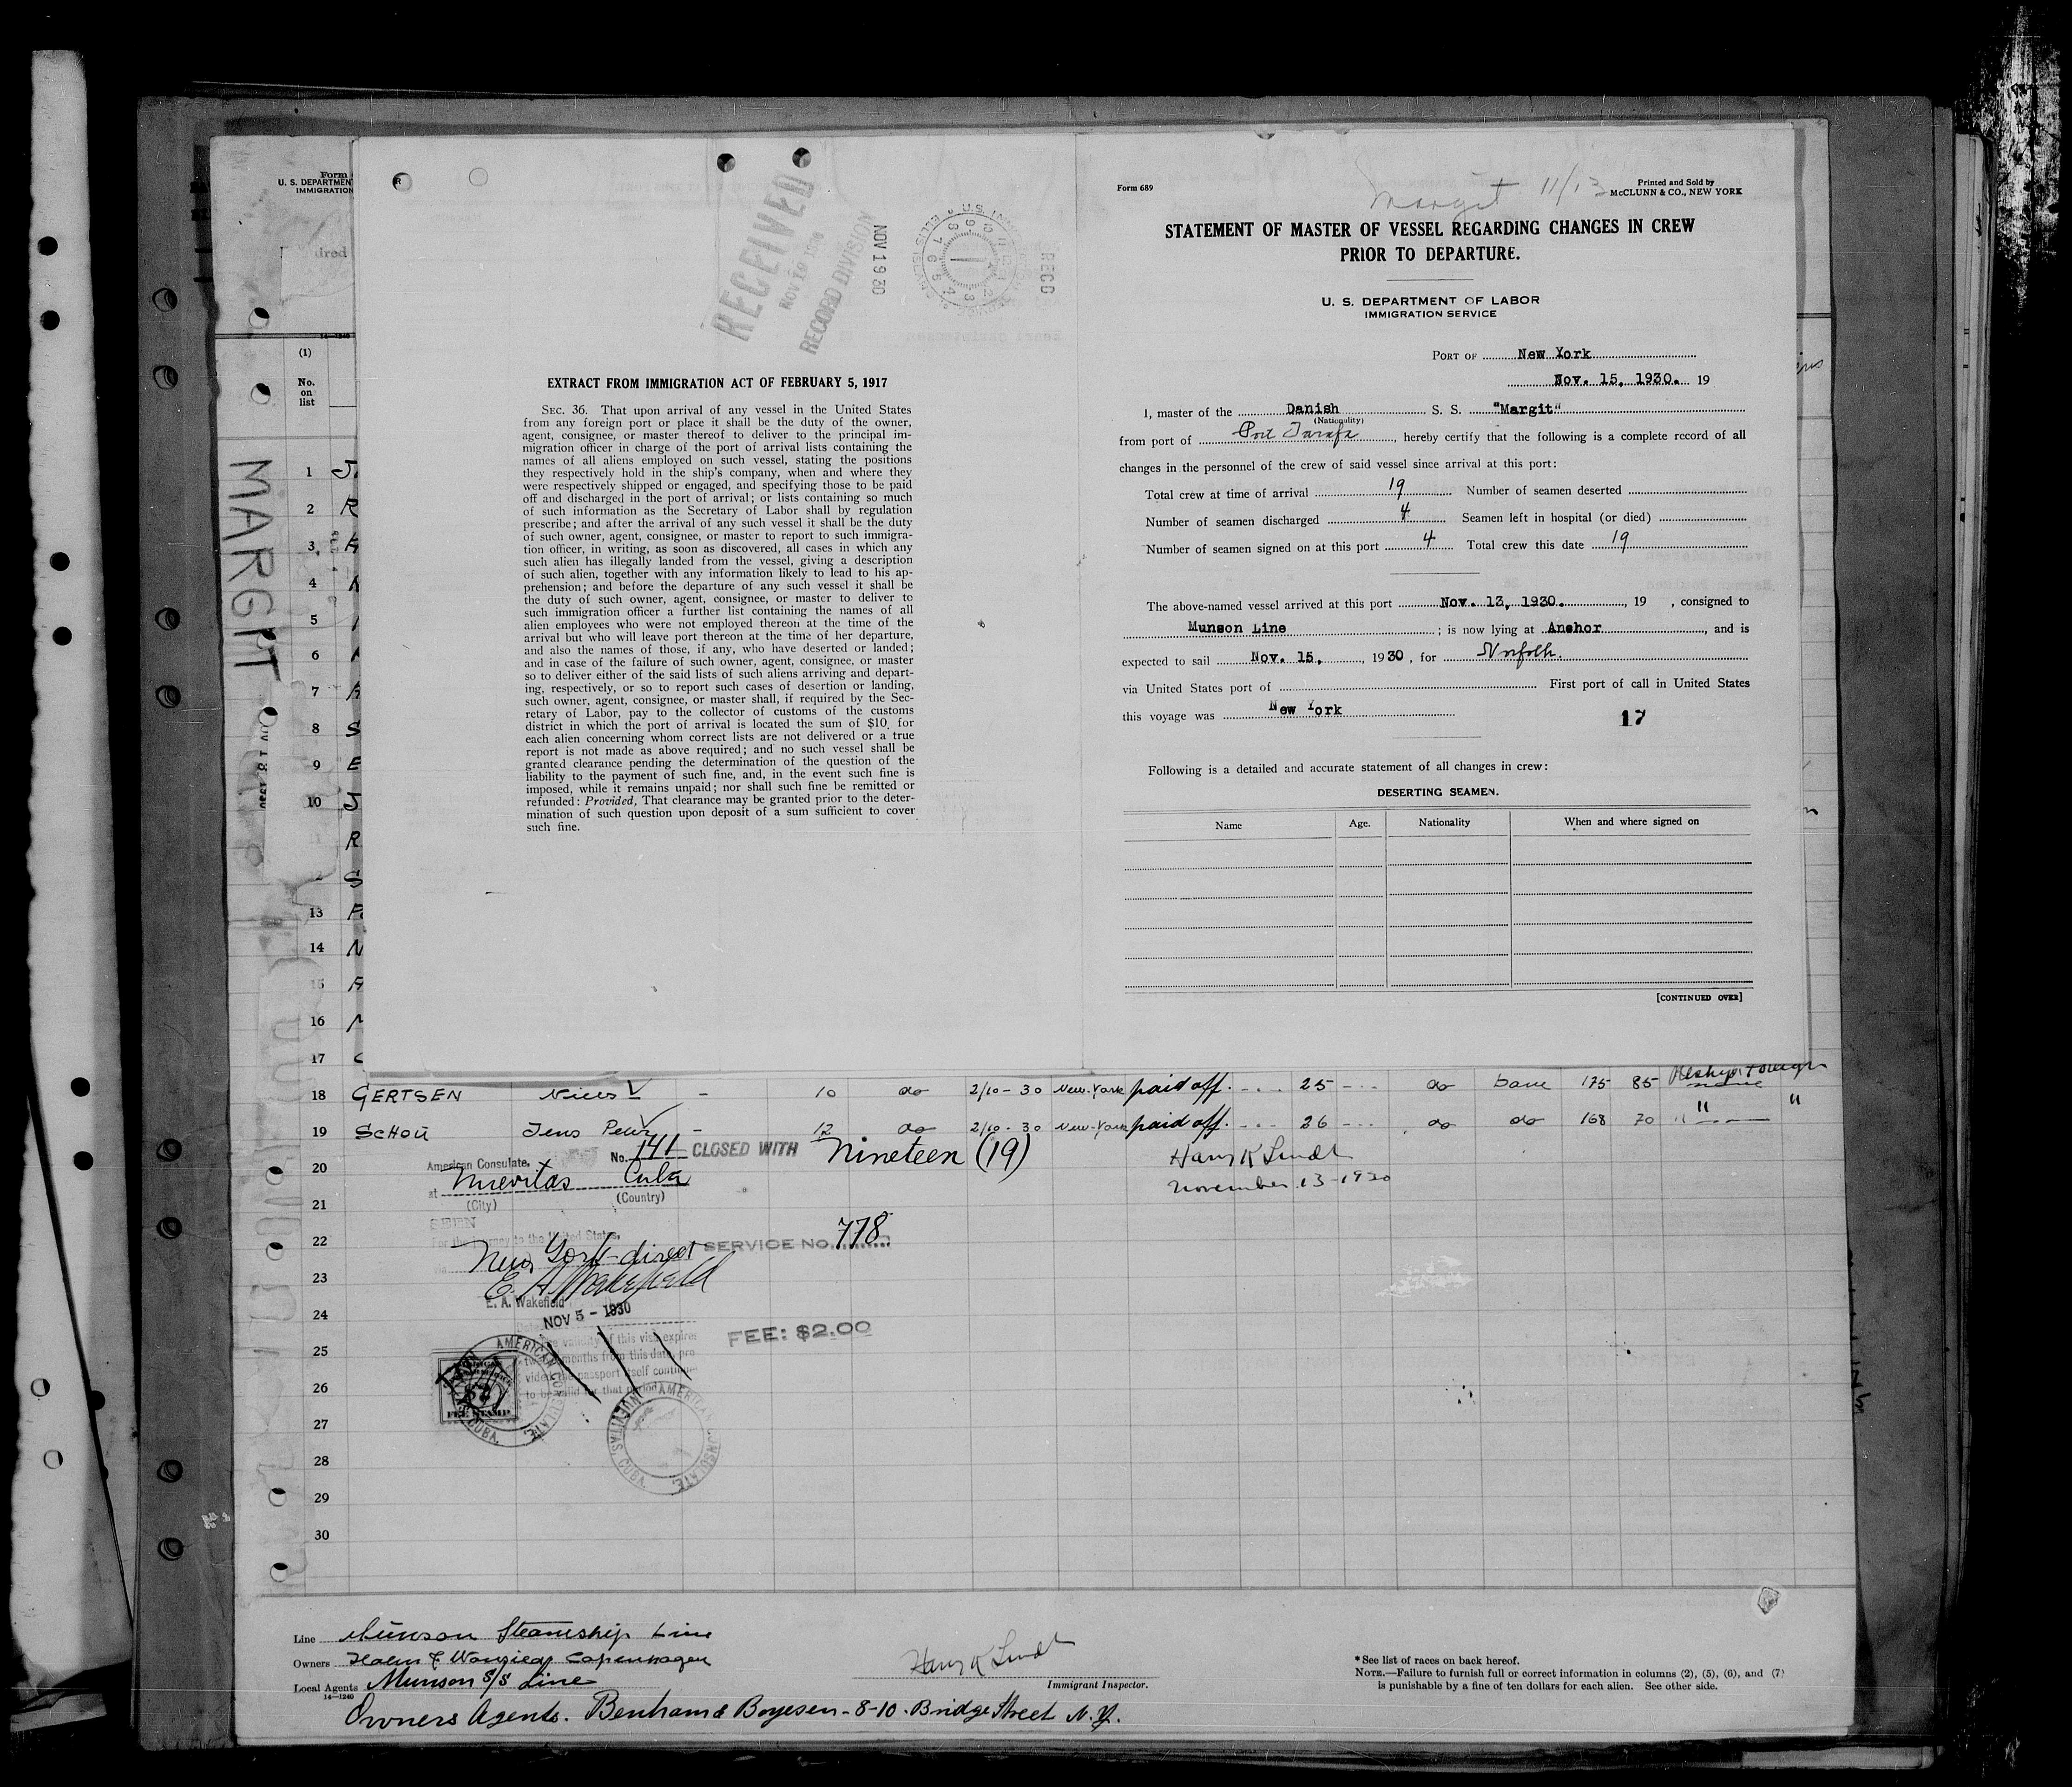 Form
U. S. DEPARTMEN
IMMIGRATION
dred
14—1240
(1)
No.
on
list
MARGIT
1
2 R
3
4
5
6
7
8 S
9 E
10 J
R
S
13
14 N
15
16
17
RECEIVED
NOV 19 1930
RECORD DIVISION
NOV 19 30
REC'D
EXTRACT FROM IMMIGRATION ACT OF FEBRUARY 5, 1917
SEC. 36. That upon arrival of any vessel in the United States
from any foreign port or place it shall be the duty of the owner,
agent, consignee, or master thereof to deliver to the principal im-
migration officer in charge of the port of arrival lists containing the
names of all aliens employed on such vessel, stating the positions
they respectively hold in the ship's company, when and where they
were respectively shipped or engaged, and specifying those to be paid
off and discharged in the port of arrival; or lists containing so much
of such information as the Secretary of Labor shall by regulation
prescribe; and after the arrival of any such vessel it shall be the duty
of such owner, agent, consignee, or master to report to such immigra-
tion officer, in writing, as soon as discovered, all cases in which any
such alien has illegally landed from the vessel, giving a description
of such alien, together with any information likely to lead to his ap-
prehension; and before the departure of any such vessel it shall be
the duty of such owner, agent, consignee, or master to deliver to
such immigration officer a further list containing the names of all
alien employees who were not employed thereon at the time of the
arrival but who will leave port thereon at the time of her departure,
and also the names of those, if any, who have deserted or landed;
and in case of the failure of such owner, agent, consignee, or master
so to deliver either of the said lists of such aliens arriving and depart-
ing, respectively, or so to report such cases of desertion or landing,
such owner, agent, consignee, or master shall, if required by the Sec-
retary of Labor, pay to the collector of customs of the customs
district in which the port of arrival is located the sum of $10 for
each alien concerning whom correct lists are not delivered or a true
report is not made as above required; and no such vessel shall be
granted clearance pending the determination of the question of the
liability to the payment of such fine, and, in the event such fine is
imposed, while it remains unpaid; nor shall such fine be remitted or
refunded: Provided, That clearance may be granted prior to the deter-
mination of such question upon deposit of a sum sufficient to cover
such fine.
Form 689
Margit 11/13
Printed and Sold by
McCLUNN & CO., NEW YORK
STATEMENT OF MASTER OF VESSEL REGARDING CHANGES IN CREW
PRIOR TO DEPARTURE.
U. S. DEPARTMENT OF LABOR
IMMIGRATION SERVICE
PORT OF New York
Nov. 15, 1930. 19
I, master of the Danish S. S. "Margit"
(Nationality)
from port of Port Tarafa, hereby certify that the following is a complete record of all
changes in the personnel of the crew of said vessel since arrival at this port:
Total crew at time of arrival 19 Number of seamen deserted
Number of seamen discharged 4 Seamen left in hospital (or died)
Number of seamen signed on at this port 4 Total crew this date 19
The above-named vessel arrived at this port Nov. 13, 1930. , 19 , consigned to
Munson Line ; is now lying at Anchor , and is
expected to sail Nov. 15, , 1930, for Norfolk.
via United States port of First port of call in United States
this voyage was New York
17
Following is a detailed and accurate statement of all changes in crew:
DESERTING SEAMEN.
Name Age. Nationality When and where signed on
[CONTINUED OVER]
18 GERTSEN - 10 do 2/10-30 New-York paid off. 25 do 175 85
19 SCHOU Jens Peter - 12 do 2/10-30 New-York paid off. 26 do do 168 70 " "
No. 141 CLOSED WITH Nineteen (19) Harry K Lindt
November 13-1930
20 American Consulate,
at Nuevitas Cuba
21 (City) (Country)
SEEN
22 For the journey to the United States,
New York-direct SERVICE NO. 778
23 E. A. Wakefield
E. A. Wakefield
24 NOV 5 - 1930
FEE: $2.00
25 The validity of this visa expires
months from this date, pro-
vided the passport itself continues
26 to be valid for that period
AMERICAN CONSULATE
NUEVITAS, CUBA.
FEE STAMP
27
AMERICAN CONSULATE.
NUEVITAS, CUBA.
28
29
30
Line Munson Steamship Line
Owners Holm & Wonsild Copenhagen
Local Agents Munson S/S Line
14—1240
Owners Agents. Benham & Boyesen - 8-10. Bridge Street N.Y.
Harry K Lindt
Immigrant Inspector.
* See list of races on back hereof.
NOTE.—Failure to furnish full or correct information in columns (2), (5), (6), and (7)
is punishable by a fine of ten dollars for each alien. See other side.